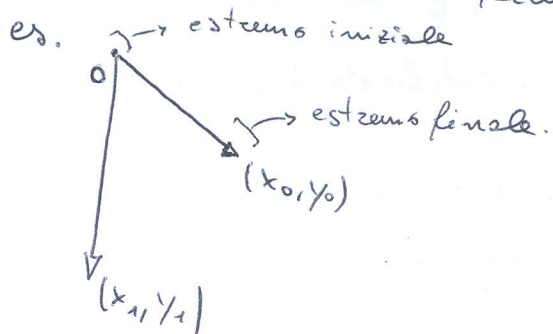 es. → estremo iniziale
O
→ estremo finale.
(x₀, y₀)
(x₁, y₁)